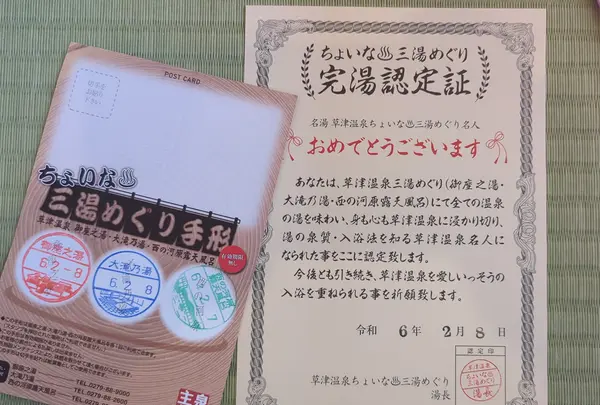 POST CARD
ちょいな♨
三湯めぐり手形
草津温泉 御座之湯・大滝乃湯・西の河原露天風呂
有効期限
無し
御座之湯
6.2.-8
大滝乃湯
6.2.8
6.2.-7
御座之湯
大滝乃湯
TEL.0279-88-9000
TEL.0279-88-2600
ちょいな♨三湯めぐり
完湯認定証
名湯 草津温泉ちょいな♨三湯めぐり名人
おめでとうございます
あなたは、草津温泉三湯めぐり(御座之湯・
大滝乃湯・西の河原露天風呂)にて全ての温泉
の湯を味わい、身も心も草津温泉に浸かり切り、
湯の泉質・入浴法を知る草津温泉名人に
なられた事をここに認定致します。
今後とも引き続き、草津温泉を愛しいっそうの
入浴を重ねられる事を祈願致します。
令和 6年 2月 8日
認定印
草津温泉
ちょいな♨
三湯めぐり
湯長
草津温泉ちょいな♨三湯めぐり
湯長